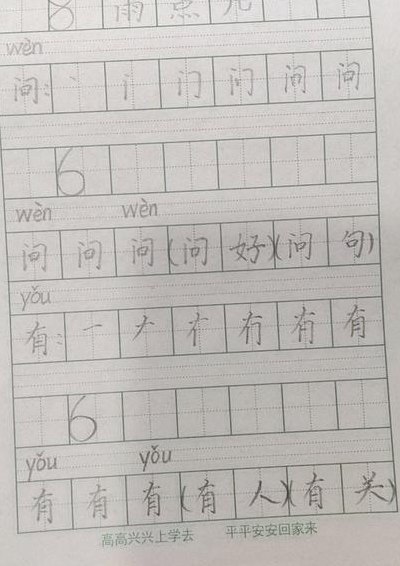 8 雨 点 儿
wèn
问: 丶 讠 门 问 问 问
6
wèn wèn
问 问 问(问 好)(问 句)
yǒu
有: 一 𠂇 冇 有 有
6
yǒu yǒu
有 有 有(有 人)(有 关)
高高兴兴上学去 平平安安回家来